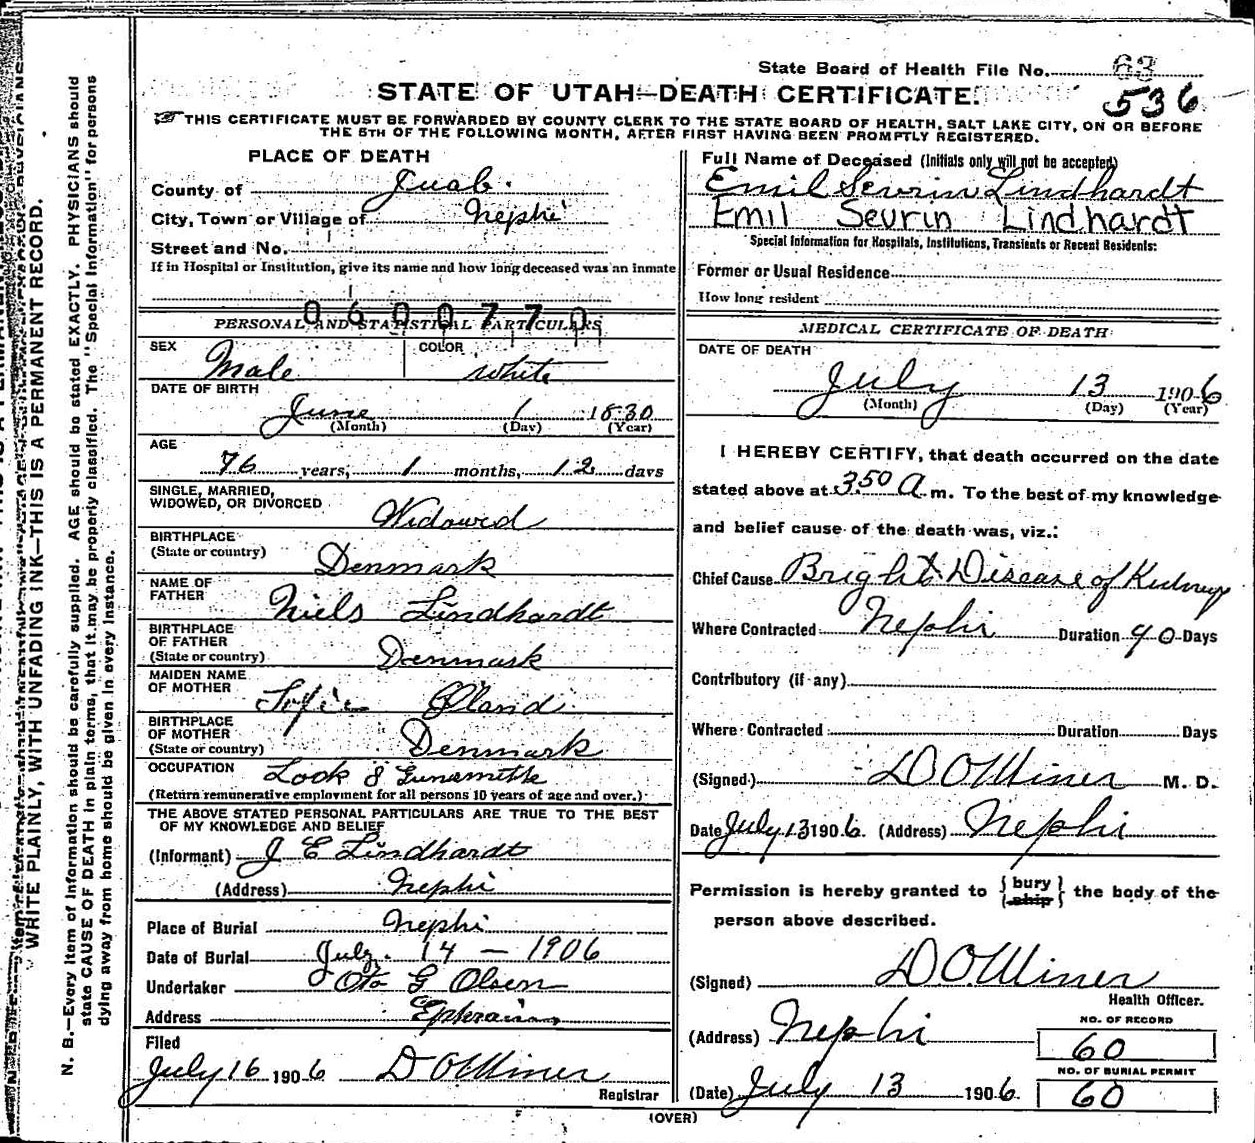 State Board of Health File No. 63
536
STATE OF UTAH—DEATH CERTIFICATE.
THIS CERTIFICATE MUST BE FORWARDED BY COUNTY CLERK TO THE STATE BOARD OF HEALTH, SALT LAKE CITY, ON OR BEFORE
THE 5TH OF THE FOLLOWING MONTH, AFTER FIRST HAVING BEEN PROMPTLY REGISTERED.
PLACE OF DEATH
County of Juab.
City, Town or Village of Nephi
Street and No.
If in Hospital or Institution, give its name and how long deceased was an inmate
0600770
PERSONAL AND STATISTICAL PARTICULARS
SEX Male COLOR white
DATE OF BIRTH
June 1 1830
(Month) (Day) (Year)
AGE
76 years, 1 months, 12 days
SINGLE, MARRIED,
WIDOWED, OR DIVORCED Widowed
BIRTHPLACE
(State or country) Denmark
NAME OF
FATHER Niels Lindhardt
BIRTHPLACE
OF FATHER
(State or country) Denmark
MAIDEN NAME
OF MOTHER Sofie
BIRTHPLACE
OF MOTHER
(State or country) Denmark
OCCUPATION Lock & Gunsmith
(Return remunerative employment for all persons 10 years of age and over.)
THE ABOVE STATED PERSONAL PARTICULARS ARE TRUE TO THE BEST
OF MY KNOWLEDGE AND BELIEF
(Informant) J E Lindhardt
(Address) Nephi
Place of Burial Nephi
Date of Burial July. 14 — 1906
Undertaker Oto G Olsen
Address Ephraim
Filed
July 16 1906 D O Miner
Registrar
Full Name of Deceased (Initials only will not be accepted)
Emil Sevrin Lindhardt
Emil Sevrin Lindhardt
Special Information for Hospitals, Institutions, Transients or Recent Residents:
Former or Usual Residence
How long resident
MEDICAL CERTIFICATE OF DEATH
DATE OF DEATH
July 13 1906
(Month) (Day) (Year)
I HEREBY CERTIFY, that death occurred on the date
stated above at 3.50 A m. To the best of my knowledge
and belief cause of the death was, viz.:
Chief Cause Brights Disease of Kidneys
Where Contracted Nephi Duration 90 Days
Contributory (if any)
Where Contracted Duration Days
(Signed) D O Miner M. D.
Date July 13 1906. (Address) Nephi
Permission is hereby granted to { bury ship } the body of the
person above described.
(Signed) D O Miner
Health Officer.
(Address) Nephi
NO. OF RECORD
60
NO. OF BURIAL PERMIT
60
(Date) July 13 1906.
(OVER)
WRITE PLAINLY, WITH UNFADING INK—THIS IS A PERMANENT RECORD.
N. B.—Every item of information should be carefully supplied. AGE should be stated EXACTLY. PHYSICIANS should
state CAUSE OF DEATH in plain terms, that it may be properly classified. The "Special Information" for persons
dying away from home should be given in every instance.